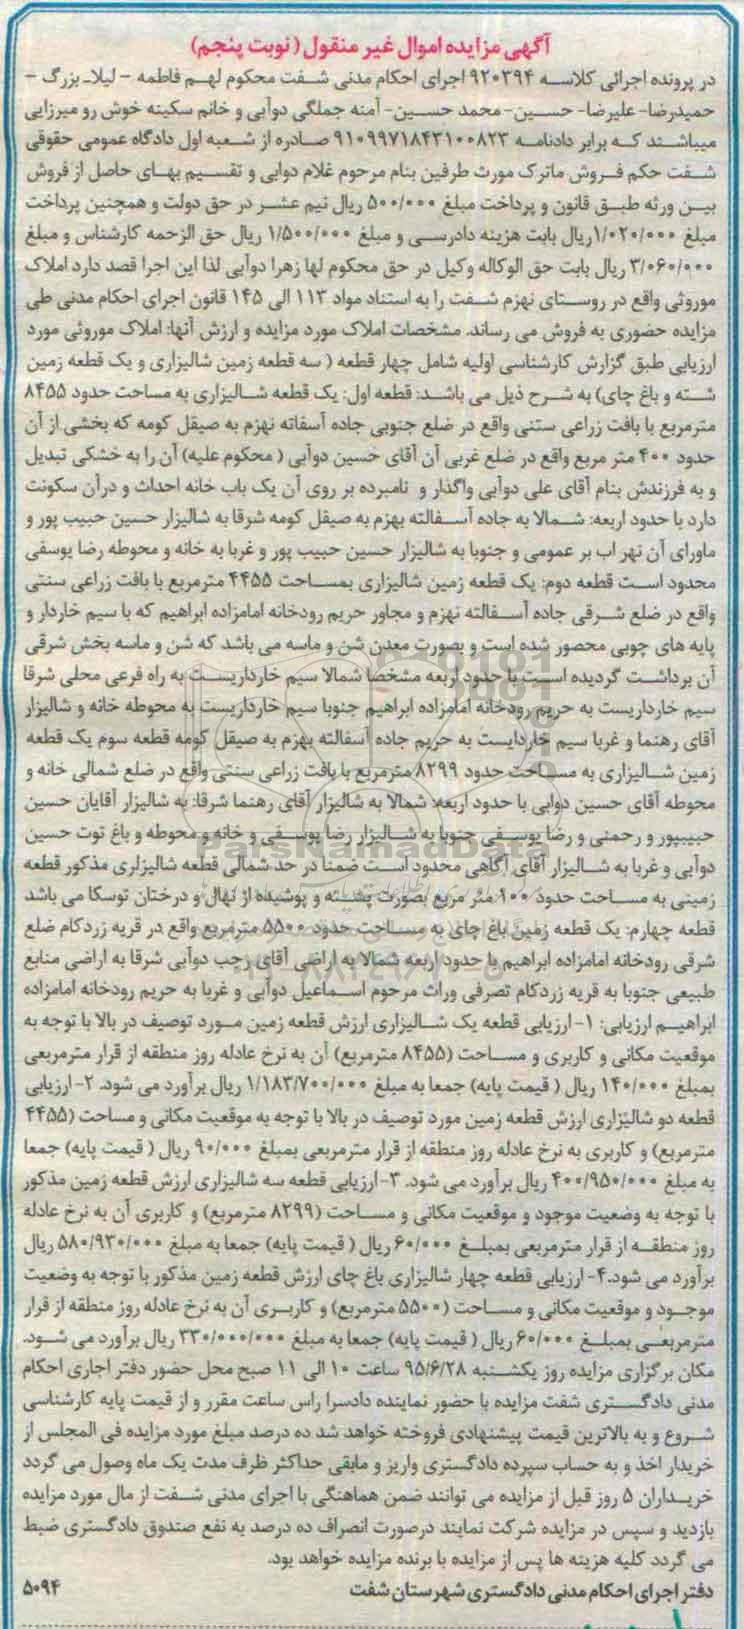 آگهی مزایده اموال غیر منقول (نوبت پنجم)
در پرونده اجرائی کلاسه ۹۲۰۳۹۴ اجرای احکام مدنی شفت محکوم لهم فاطمه - لیلا- بزرگ -
حمیدرضا- علیرضا- حسین- محمد حسین- آمنه جملگی دوآبی و خانم سکینه خوش رو میرزایی
میباشند که برابر دادنامه ۹۱۰۹۹۷۱۸۴۳۱۰۰۸۲۳ صادره از شعبه اول دادگاه عمومی حقوقی
شفت حکم فروش ماترک مورث طرفین بنام مرحوم غلام دوابی و تقسیم بهای حاصل از فروش
بین ورثه طبق قانون و پرداخت مبلغ ۵۰۰/۰۰۰ ریال نیم عشر در حق دولت و همچنین پرداخت
مبلغ ۱/۰۲۰/۰۰۰ریال بابت هزینه دادرسی و مبلغ ۱/۵۰۰/۰۰۰ ریال حق الزحمه کارشناس و مبلغ
۳/۰۶۰/۰۰۰ ریال بابت حق الوکاله وکیل در حق محکوم لها زهرا دوآبی لذا این اجرا قصد دارد املاک
موروثی واقع در روستای نهزم شفت را به استناد مواد ۱۱۳ الی ۱۴۵ قانون اجرای احکام مدنی طی
مزایده حضوری به فروش می رساند. مشخصات املاک مورد مزایده و ارزش آنها: املاک موروثی مورد
ارزیابی طبق گزارش کارشناسی اولیه شامل چهار قطعه ( سه قطعه زمین شالیزاری و یک قطعه زمین
شته و باغ چای) به شرح ذیل می باشد: قطعه اول: یک قطعه شالیزاری به مساحت حدود ۸۴۵۵
مترمربع با بافت زراعی ستنی واقع در ضلع جنوبی جاده آسفاته نهزم به صیقل کومه که بخشی از آن
حدود ۴۰۰ متر مربع واقع در ضلع غربی آن آقای حسین دوآبی ( محکوم علیه) آن را به خشکی تبدیل
و به فرزندش بنام آقای علی دوآبی واگذار و نامبرده بر روی آن یک باب خانه احداث و درآن سکونت
دارد با حدود اربعه: شمالا به جاده آسفالته بهزم به صیقل کومه شرقا به شالیزار حسین حبیب پور و
ماورای آن نهر اب بر عمومی و جنوبا به شالیزار حسین حبیب پور و غربا به خانه و محوطه رضا یوسفی
محدود است قطعه دوم: یک قطعه زمین شالیزاری بمساحت ۴۴۵۵ مترمربع با بافت زراعی سنتی
واقع در ضلع شرقی جاده آسفالته نهزم و مجاور حریم رودخانه امامزاده ابراهیم که با سیم خاردار و
پایه های چوبی محصور شده است و بصورت معدن شن و ماسه می باشد که شن و ماسه بخش شرقی
آن برداشت گردیده است با حدود اربعه مشخصا شمالا سیم خارداریست به راه فرعی محلی شرقا
سیم خارداریست به حریم رودخانه امامزاده ابراهیم جنوبا سیم خارداریست به محوطه خانه و شالیزار
آقای رهنما و غربا سیم خاردایست به حریم جاده آسفالته بهزم به صیقل کومه قطعه سوم یک قطعه
زمین شالیزاری به مساحت حدود ۸۲۹۹ مترمربع با بافت زراعی سنتی واقع در ضلع شمالی خانه و
محوطه آقای حسین دوابی با حدود اربعه: شمالا به شالیزار آقای رهنما شرقا: به شالیزار آقایان حسین
حبیبپور و رحمنی و رضا یوسفی جنوبا به شالیزار رضا یوسفی و خانه و محوطه و باغ توت حسین
دوآبی و غربا به شالیزار آقای آگاهی محدود است ضمنا در حد شمالی قطعه شالیزلری مذکور قطعه
زمینی به مساحت حدود ۱۰۰ متر مربع بصورت پشته و پوشیده از نهال و درختان توسکا می باشد
قطعه چهارم: یک قطعه زمین باغ چای به مساحت حدود ۵۵۰۰ مترمربع واقع در قریه زردکام ضلع
شرقی رودخانه امامزاده ابراهیم با حدود اربعه شمالا به اراضی آقای رجب دوآبی شرقا به اراضی منابع
طبیعی جنوبا به قریه زردکام تصرفی وراث مرحوم اسماعیل دوآبی و غربا به حریم رودخانه امامزاده
ابراهیم ارزیابی: ۱- ارزیابی قطعه یک شالیزاری ارزش قطعه زمین مورد توصیف در بالا با توجه به
موقعیت مکانی و کاربری و مساحت (۸۴۵۵ مترمربع) آن به نرخ عادله روز منطقه از قرار مترمربعی
بمبلغ ۱۴۰/۰۰۰ ریال ( قیمت پایه) جمعا به مبلغ ۱/۱۸۳/۷۰۰/۰۰۰ ریال برآورد می شود. ۲- ارزیابی
قطعه دو شالیزاری ارزش قطعه زمین مورد توصیف در بالا با توجه به موقعیت مکانی و مساحت (۴۴۵۵
مترمربع) و کاربری به نرخ عادله روز منطقه از قرار مترمربعی بمبلغ ۹۰/۰۰۰ ریال ( قیمت پایه) جمعا
به مبلغ ۴۰۰/۹۵۰/۰۰۰ ریال برآورد می شود. ۳- ارزیابی قطعه سه شالیزاری ارزش قطعه زمین مذکور
با توجه به وضعیت موجود و موقعیت مکانی و مساحت (۸۲۹۹ مترمربع) و کاربری آن به نرخ عادله
روز منطقه از قرار مترمربعی بمبلغ ۶۰/۰۰۰ ریال ( قیمت پایه) جمعا به مبلغ ۵۸۰/۹۳۰/۰۰۰ ریال
برآورد می شود.۴- ارزیابی قطعه چهار شالیزاری باغ چای ارزش قطعه زمین مذکور با توجه به وضعیت
موجود و موقعیت مکانی و مساحت (۵۵۰۰ مترمربع) و کاربری آن به نرخ عادله روز منطقه از قرار
مترمربعی بمبلغ ۶۰/۰۰۰ ریال ( قیمت پایه) جمعا به مبلغ ۳۳۰/۰۰۰/۰۰۰ ریال برآورد می شود.
مکان برگزاری مزایده روز یکشنبه ۹۵/۶/۲۸ ساعت ۱۰ الی ۱۱ صبح محل حضور دفتر اجاری احکام
مدنی دادگستری شفت مزایده با حضور نماینده دادسرا راس ساعت مقرر و از قیمت پایه کارشناسی
شروع و به بالاترین قیمت پیشنهادی فروخته خواهد شد ده درصد مبلغ مورد مزایده فی المجلس از
خریدار اخذ و به حساب سپرده دادگستری واریز و مابقی حداکثر ظرف مدت یک ماه وصول می گردد
خریداران ۵ روز قبل از مزایده می توانند ضمن هماهنگی با اجرای مدنی شفت از مال مورد مزایده
بازدید و سپس در مزایده شرکت نمایند درصورت انصراف ده درصد به نفع صندوق دادگستری ضبط
می گردد کلیه هزینه ها پس از مزایده با برنده مزایده خواهد بود.
دفتر اجرای احکام مدنی دادگستری شهرستان شفت ۵۰۹۴
ParsNamadData